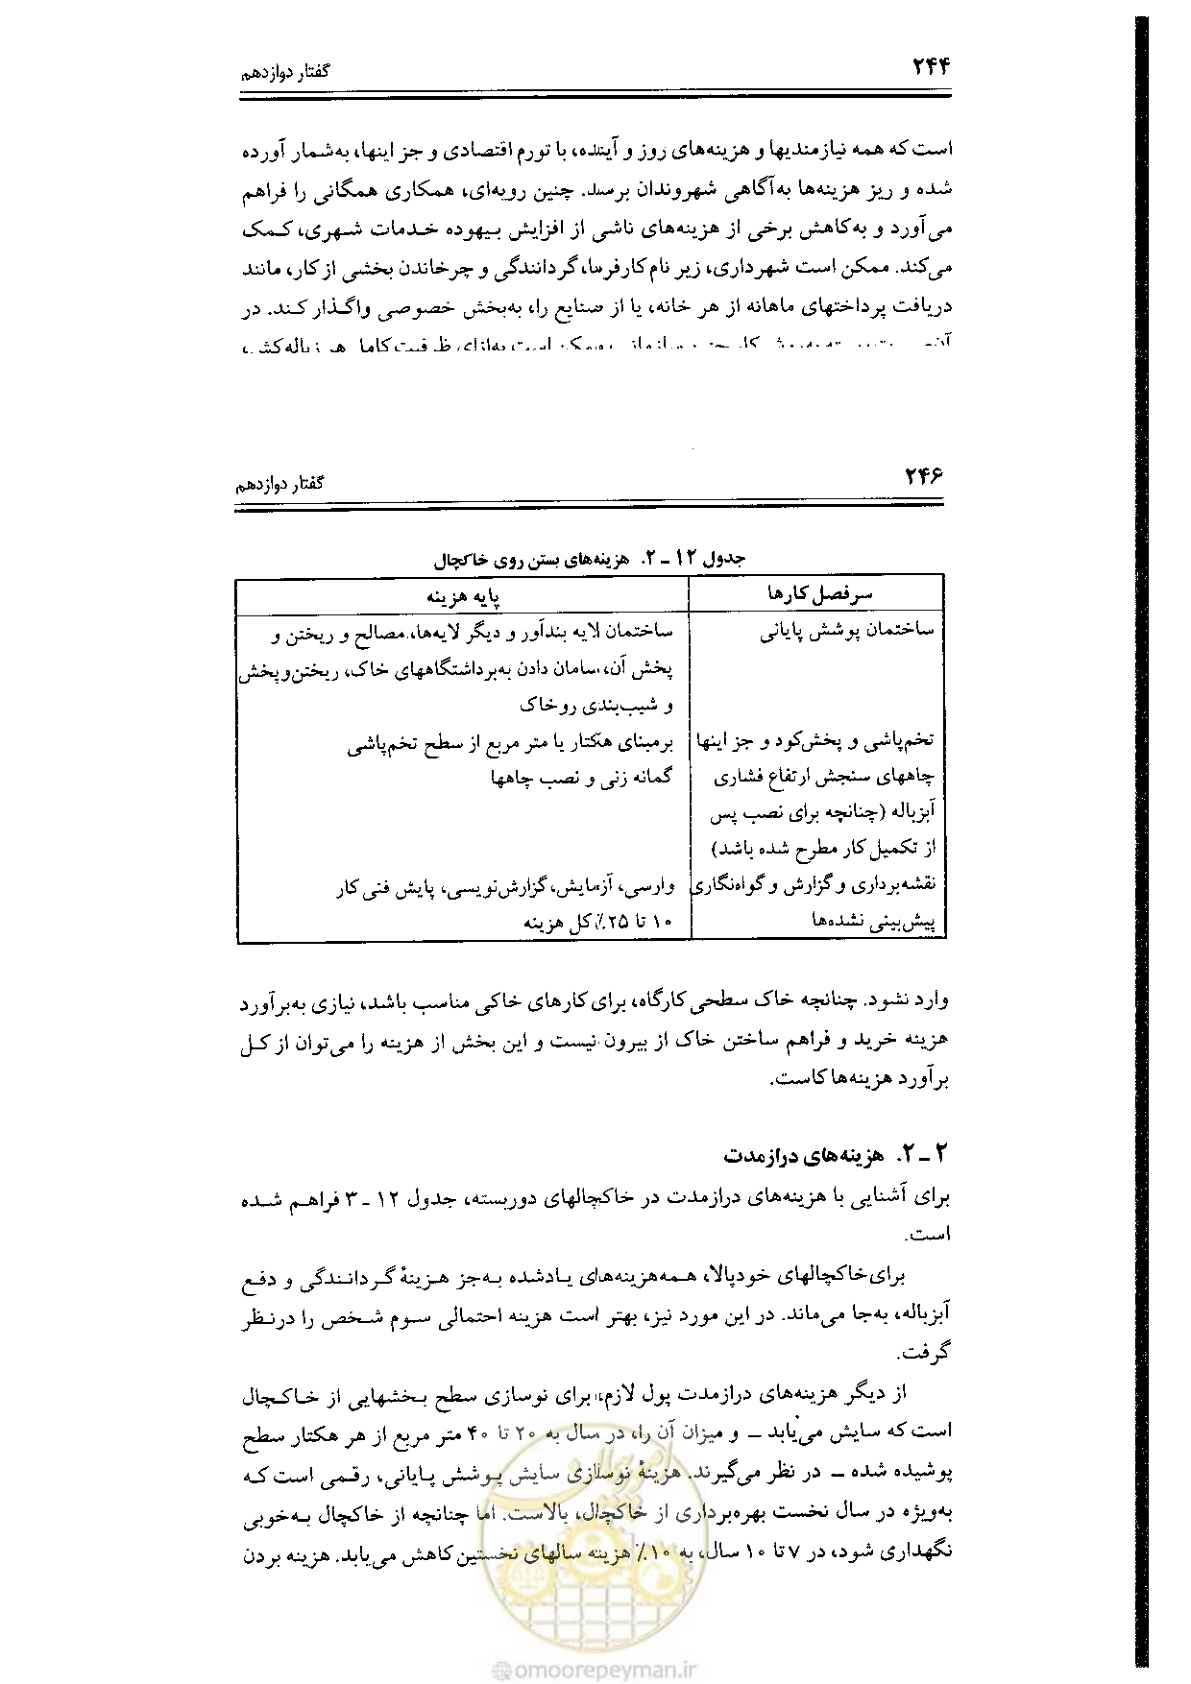 ۲۴۴
گفتار دوازدهم
است که همه نیازمندیها و هزینه‌های روز و آینده، با تورم اقتصادی و جز اینها، به‌شمار آورده
شده و ریز هزینه‌ها به‌آگاهی شهروندان برسد. چنین رویه‌ای، همکاری همگانی را فراهم
می‌آورد و به‌کاهش برخی از هزینه‌های ناشی از افزایش بیهوده خدمات شهری، کمک
می‌کند. ممکن است شهرداری، زیر نام کارفرما، گردانندگی و چرخاندن بخشی از کار، مانند
دریافت پرداختهای ماهانه از هر خانه، یا از صنایع را، به‌بخش خصوصی واگذار کند. در
۲۴۶
گفتار دوازدهم
جدول ۱۲ ـ ۲. هزینه‌های بستن روی خاکچال
سرفصل کارها
پایه هزینه
ساختمان پوشش پایانی
ساختمان لایه بندآور و دیگر لایه‌ها، مصالح و ریختن و
پخش آن، سامان دادن به‌برداشتگاههای خاک، ریختن‌وپخش
و شیب‌بندی روخاک
تخم‌پاشی و پخش‌کود و جز اینها
برمبنای هکتار یا متر مربع از سطح تخم‌پاشی
چاههای سنجش ارتفاع فشاری
گمانه زنی و نصب چاهها
آبزباله (چنانچه برای نصب پس
از تکمیل کار مطرح شده باشد)
نقشه‌برداری و گزارش و گواه‌نگاری
وارسی، آزمایش، گزارش‌نویسی، پایش فنی کار
پیش‌بینی نشده‌ها
۱۰ تا ۲۵٪ کل هزینه
وارد نشود. چنانچه خاک سطحی کارگاه، برای کارهای خاکی مناسب باشد، نیازی به‌برآورد
هزینه خرید و فراهم ساختن خاک از بیرون نیست و این بخش از هزینه را می‌توان از کل
برآورد هزینه‌ها کاست.
۲ ـ ۲. هزینه‌های درازمدت
برای آشنایی با هزینه‌های درازمدت در خاکچالهای دوربسته، جدول ۱۲ ـ ۳ فراهم شده
است.
برای خاکچالهای خودپالا، همه‌هزینه‌های یادشده به‌جز هزینهٔ گردانندگی و دفع
آبزباله، به‌جا می‌ماند. در این مورد نیز، بهتر است هزینه احتمالی سوم شخص را درنظر
گرفت.
از دیگر هزینه‌های درازمدت پول لازم، برای نوسازی سطح بخشهایی از خاکچال
است که سایش می‌یابد ــ و میزان آن را، در سال به ۲۰ تا ۴۰ متر مربع از هر هکتار سطح
پوشیده شده ــ در نظر می‌گیرند. هزینهٔ نوسازی سایش پوشش پایانی، رقمی است که
به‌ویژه در سال نخست بهره‌برداری از خاکچال، بالاست. اما چنانچه از خاکچال به‌خوبی
نگهداری شود، در ۷ تا ۱۰ سال، به ۱۰٪ هزینه سالهای نخستین کاهش می‌یابد. هزینه بردن
@omoorepeyman.ir